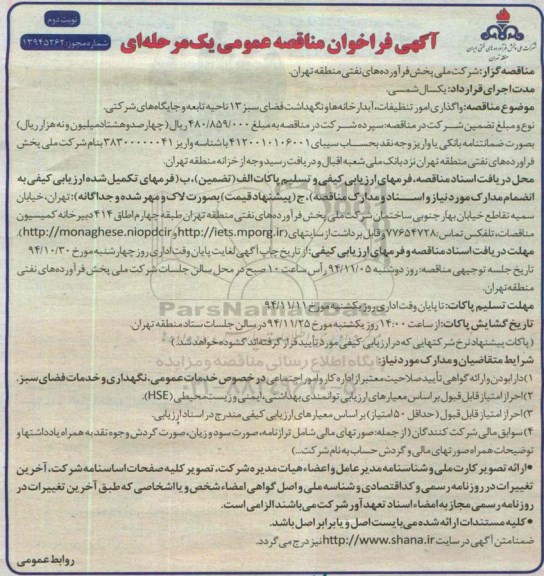 نوبت دوم
شماره مجوز: ۱۳۹۴۵۲۶۲
شرکت ملی پخش فرآورده‌های نفتی ایران
منطقه تهران
آگهی فراخوان مناقصه عمومی یک مرحله‌ای
مناقصه گزار: شرکت ملی پخش فرآورده‌های نفتی منطقه تهران.
مدت اجرای قرارداد: یکسال شمسی.
موضوع مناقصه: واگذاری امور تنظیفات، آبدارخانه ها و نگهداشت فضای سبز ۱۳ ناحیه تابعه و جایگاه‌های شرکتی.
نوع و مبلغ تضمین شرکت در مناقصه: سپرده شرکت در مناقصه به مبلغ ۴۸۰/۸۵۹/۰۰۰ ریال (چهارصد و هشتاد میلیون و نه هزار ریال)
بصورت ضمانتنامه بانکی یا واریز وجه نقد بحساب سیبای ۴۱۲۰۰۱۰۱۰۶۰۰۱ با شناسه واریز ۳۸۳۰۰۰۰۰۰۴۱ بنام شرکت ملی پخش
فرآورده‌های نفتی منطقه تهران نزد بانک ملی شعبه اقبال و دریافت رسید وجه از خزانه منطقه تهران.
محل دریافت اسناد مناقصه، فرمهای ارزیابی کیفی و تسلیم پاکات الف (تضمین)، ب (فرمهای تکمیل شده ارزیابی کیفی به
انضمام مدارک مورد نیاز و اسناد و مدارک مناقصه)، ج (پیشنهاد قیمت) بصورت لاک و مهر شده و جداگانه): تهران، خیابان
سمیه تقاطع خیابان بهار جنوبی ساختمان شرکت ملی پخش فرآورده‌های نفتی منطقه تهران طبقه چهارم اطاق ۴۱۴ دبیرخانه کمیسیون
مناقصات، تلفکس تماس: ۷۷۶۵۴۷۲۸ و قابل برداشت از سایتهای (http://iets.mporg.ir و http://monaghese.niopdcir).
مهلت دریافت اسناد مناقصه و فرمهای ارزیابی کیفی: از تاریخ چاپ آگهی لغایت پایان وقت اداری روز چهارشنبه مورخ ۹۴/۱۰/۳۰
تاریخ جلسه توجیهی مناقصه: روز دوشنبه ۹۴/۱۱/۰۵ رأس ساعت ۱۰ صبح در محل سالن جلسات شرکت ملی پخش فرآورده‌های نفتی
منطقه تهران.
مهلت تسلیم پاکات: تا پایان وقت اداری روز یکشنبه مورخ ۹۴/۱۱/۱۱
تاریخ گشایش پاکات: از ساعت ۱۴:۰۰ روز یکشنبه مورخ ۹۴/۱۱/۲۵ در سالن جلسات ستاد منطقه تهران.
(پاکات پیشنهاد نرخ شرکتهایی که در ارزیابی کیفی مورد تأیید قرار گرفته‌اند گشوده خواهد شد.)
ParsNamadData
شرایط متقاضیان و مدارک مورد نیاز:
پایگاه اطلاع رسانی مناقصه و مزایده
۱) دارا بودن و ارائه گواهی تأیید صلاحیت معتبر از اداره کار و امور اجتماعی در خصوص خدمات عمومی، نگهداری و خدمات فضای سبز.
۲) احراز امتیاز قابل قبول بر اساس معیارهای ارزیابی توانمندی بهداشتی، ایمنی و زیست محیطی (HSE).
۳) احراز امتیاز قابل قبول (حداقل ۵۰ امتیاز) بر اساس معیارهای ارزیابی کیفی مندرج در اسناد ارزیابی.
۴) سوابق مالی شرکت کنندگان (از جمله: صورتهای مالی شامل ترازنامه، صورت سود و زیان، صورت گردش وجوه نقد به همراه یادداشتها و
توضیحات همراه صورتهای مالی و گردش حساب به نام شرکت..)
● ارائه تصویر کارت ملی و شناسنامه مدیر عامل و اعضاء هیات مدیره شرکت، تصویر کلیه صفحات اساسنامه شرکت، آخرین
تغییرات در روزنامه رسمی و کد اقتصادی و شناسه ملی و اصل گواهی امضاء شخص و یا اشخاصی که طبق آخرین تغییرات در
روزنامه رسمی مجاز به امضاء اسناد تعهدآور شرکت می‌باشند الزامی است.
● کلیه مستندات ارائه شده می‌بایست اصل و یا برابر اصل باشد.
ضمناً متن آگهی در سایت http://www.shana.ir نیز درج می گردد.
روابط عمومی